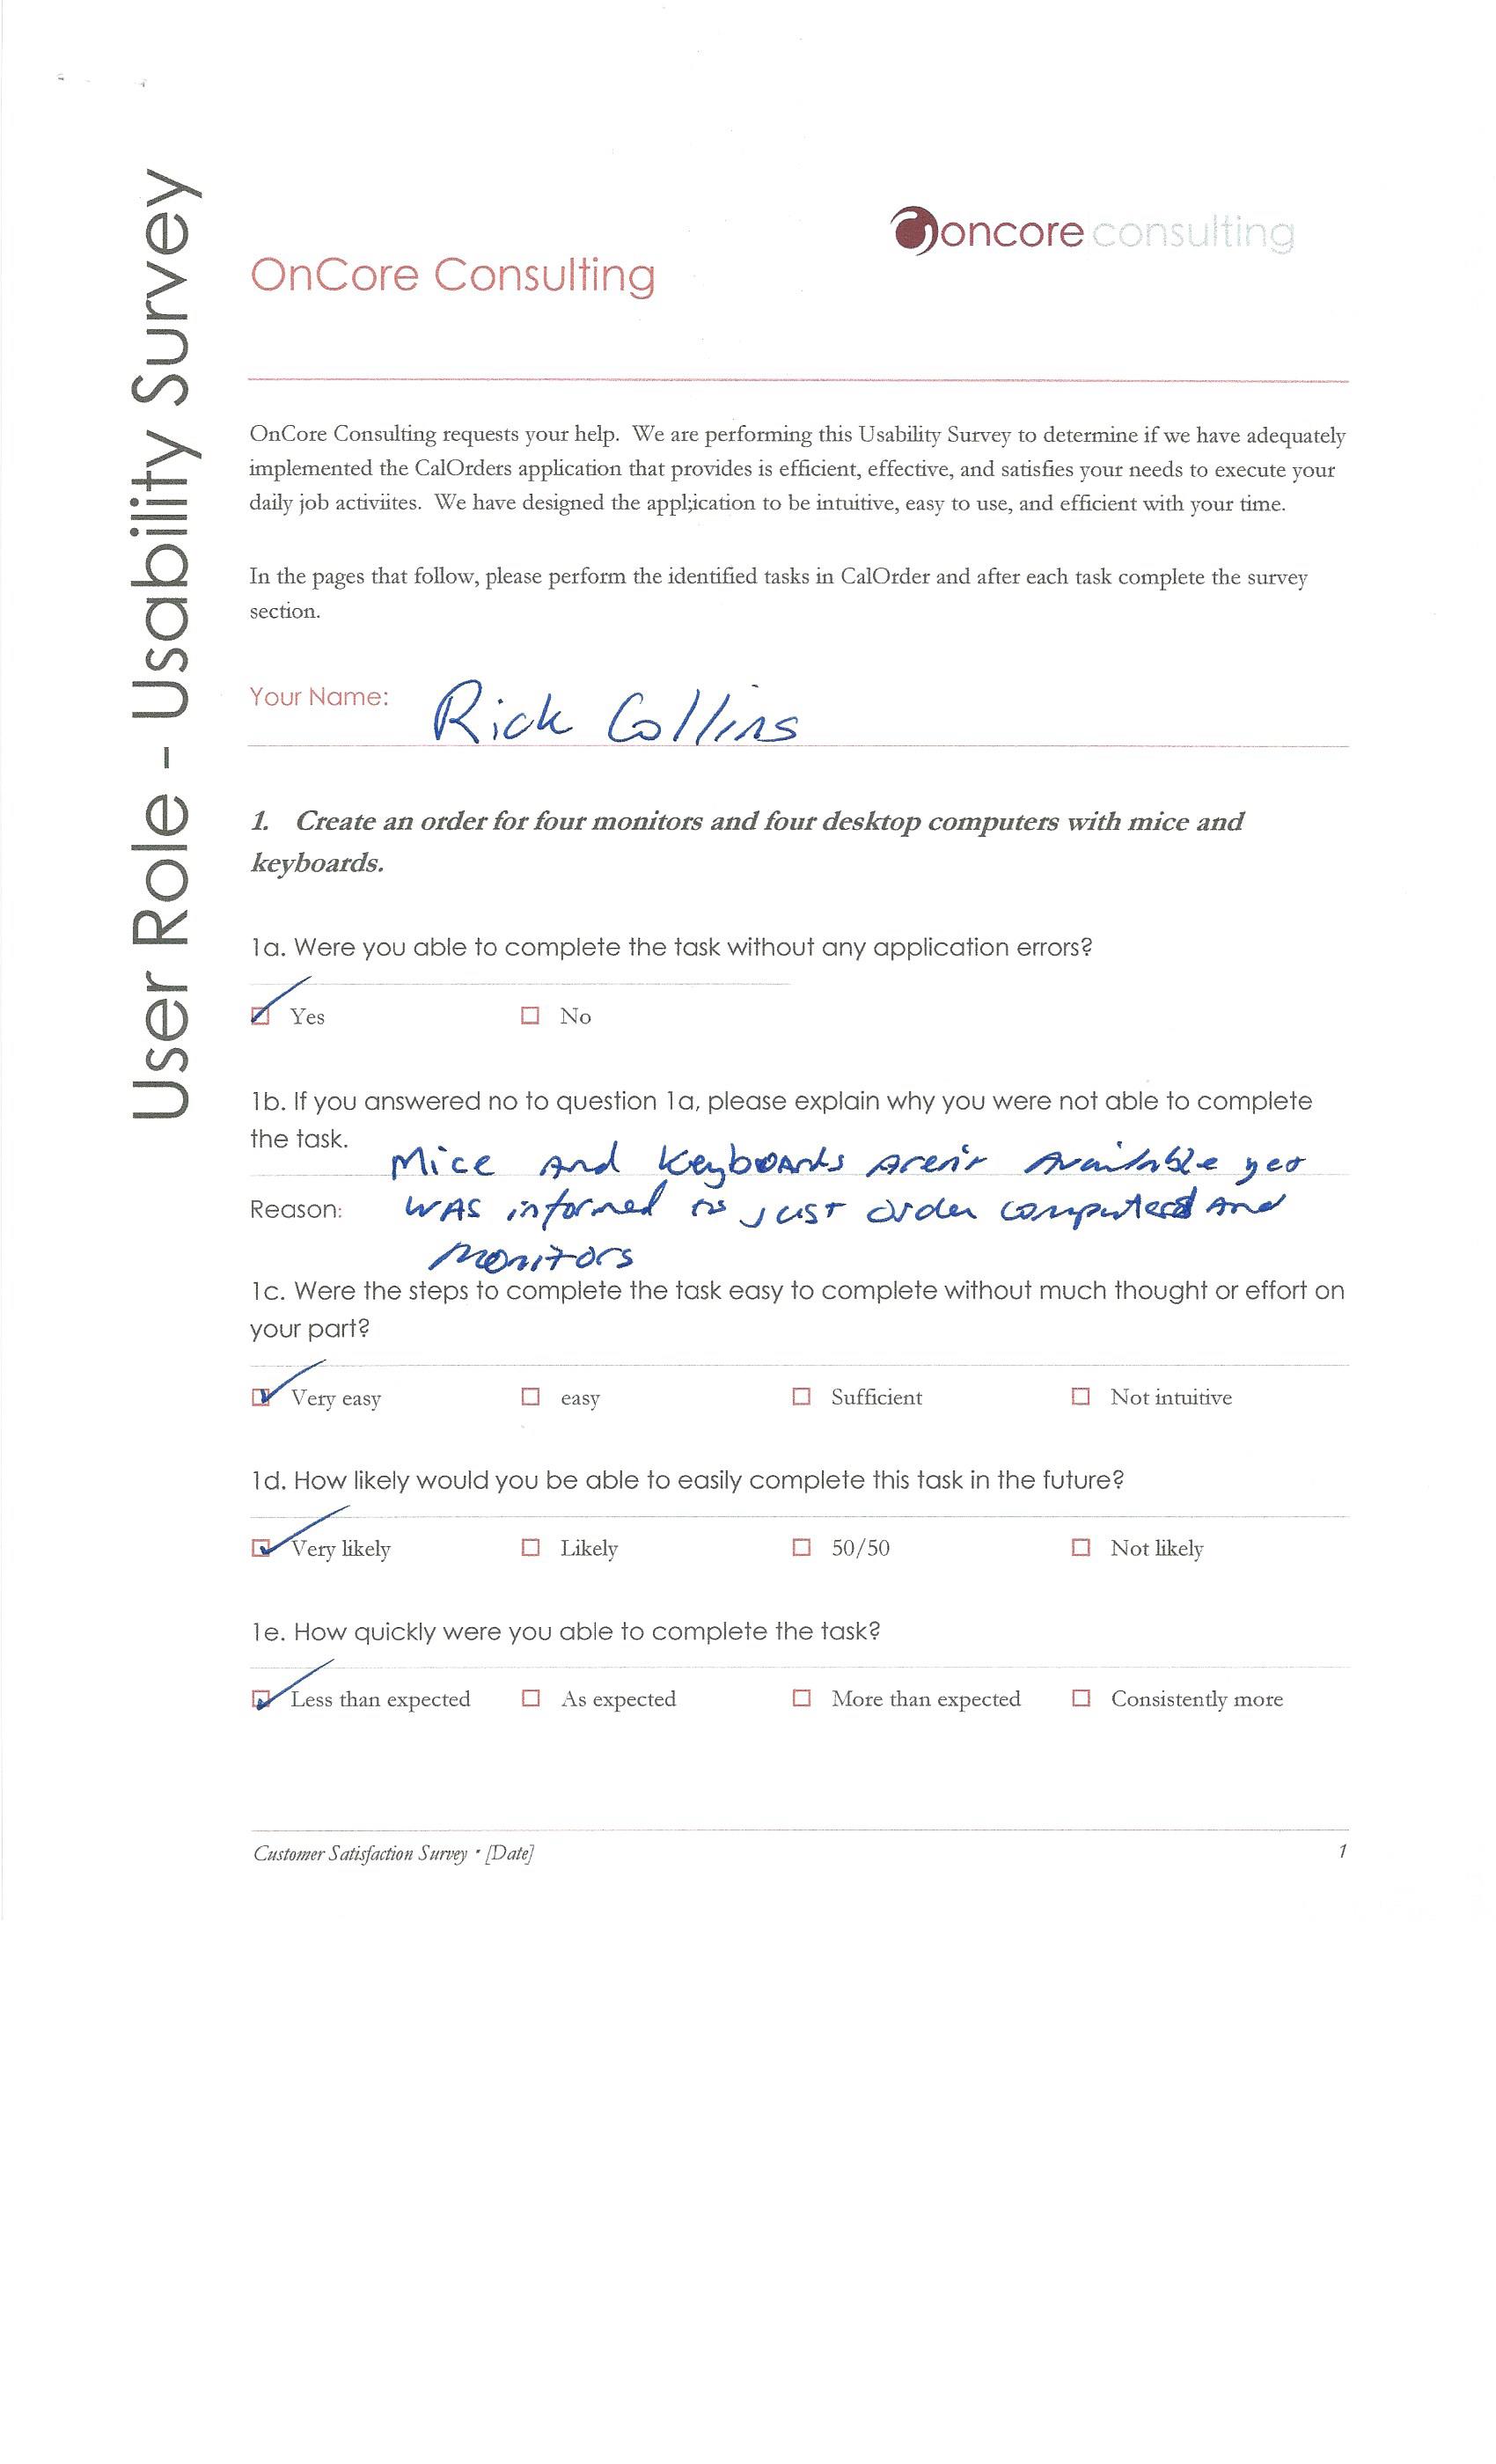 User Role - Usability Survey
oncore consulting
OnCore Consulting
OnCore Consulting requests your help. We are performing this Usability Survey to determine if we have adequately
implemented the CalOrders application that provides is efficient, effective, and satisfies your needs to execute your
daily job activiites. We have designed the appl;ication to be intuitive, easy to use, and efficient with your time.
In the pages that follow, please perform the identified tasks in CalOrder and after each task complete the survey
section.
Your Name: Rick Collins
1. Create an order for four monitors and four desktop computers with mice and
keyboards.
1a. Were you able to complete the task without any application errors?
Yes No
1b. If you answered no to question 1a, please explain why you were not able to complete
the task. Mice and Keyboards aren't available yet
Reason: was informed to just order computers and
monitors
1c. Were the steps to complete the task easy to complete without much thought or effort on
your part?
Very easy easy Sufficient Not intuitive
1d. How likely would you be able to easily complete this task in the future?
Very likely Likely 50/50 Not likely
1e. How quickly were you able to complete the task?
Less than expected As expected More than expected Consistently more
Customer Satisfaction Survey • [Date] 1